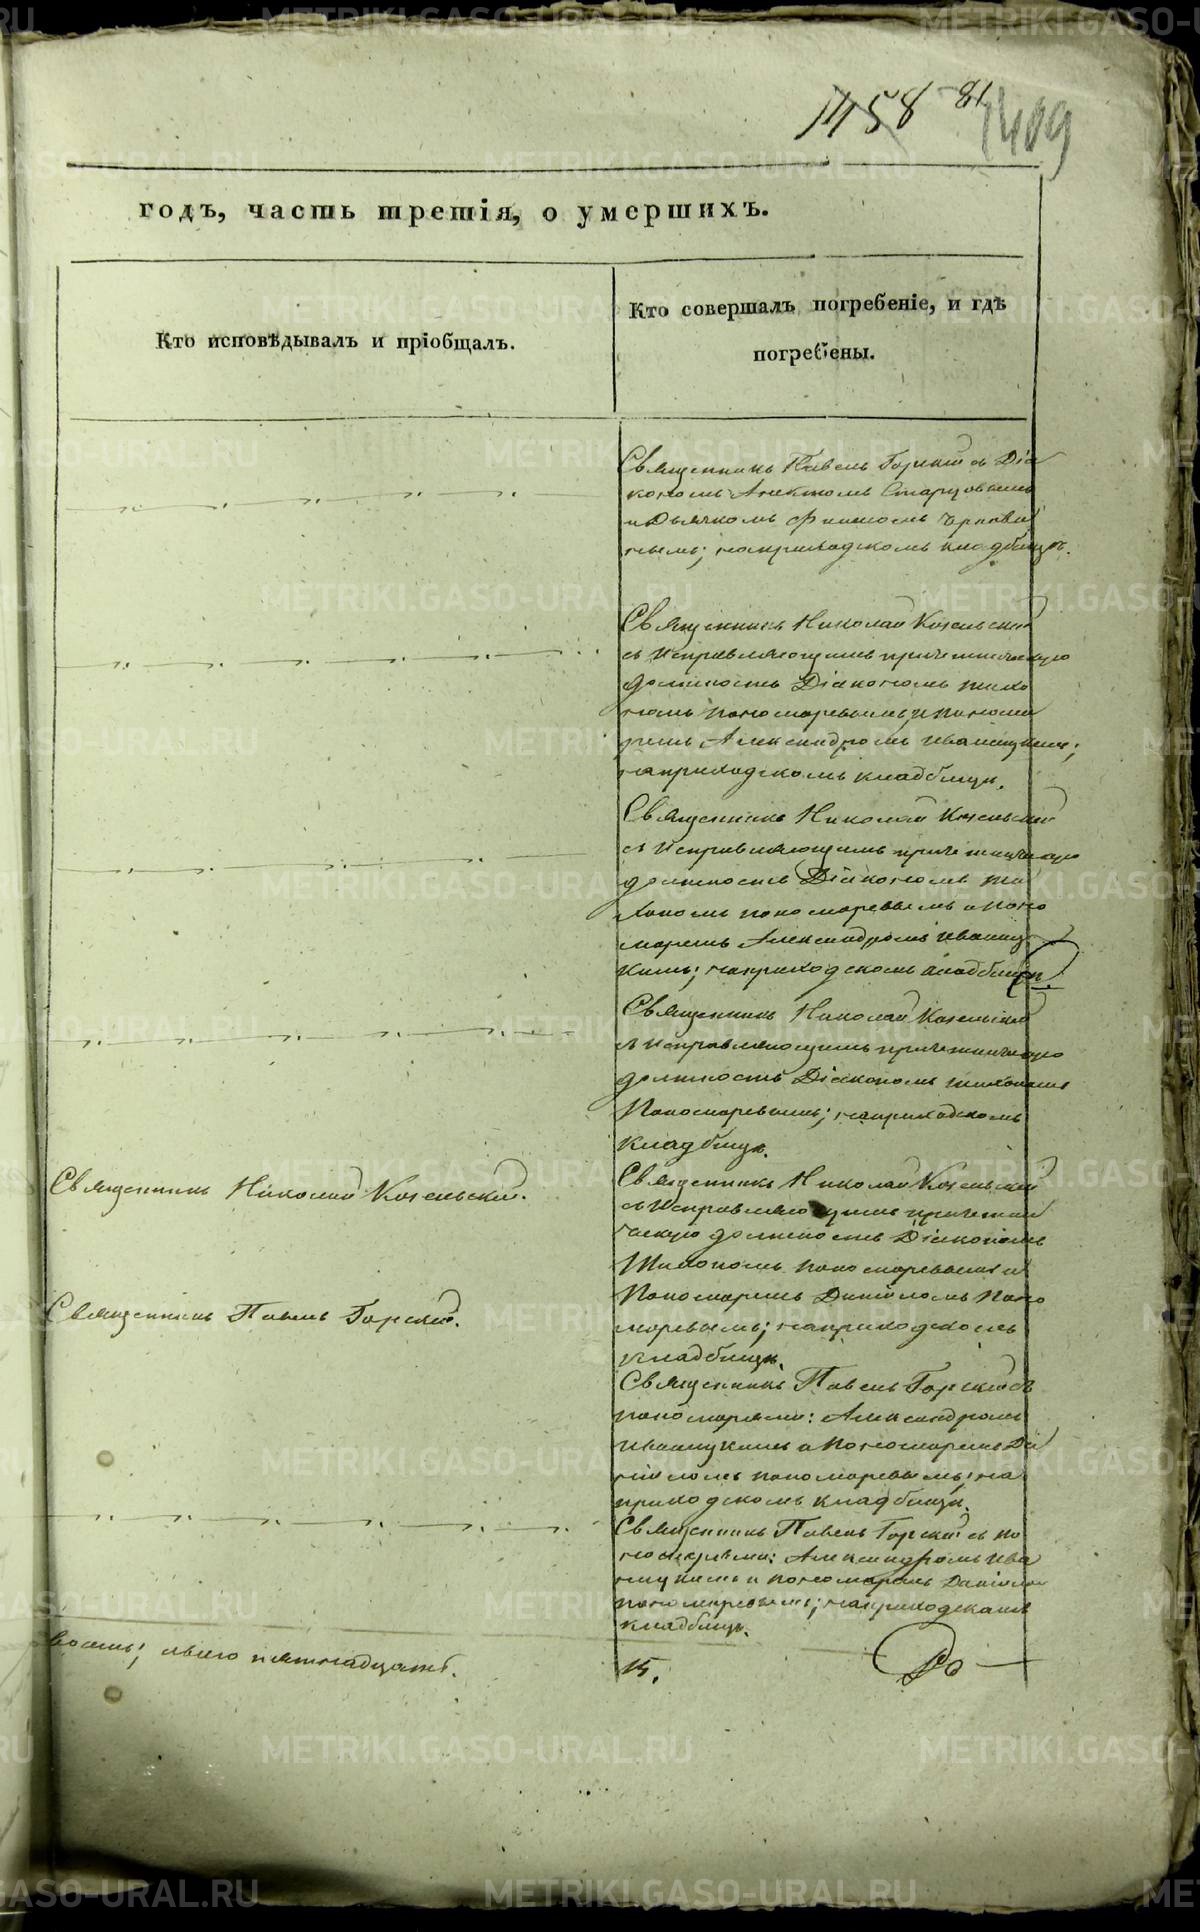 1458 81
1409
годъ, часть третія, о умершихъ.
Кто исповѣдывалъ и пріобщалъ.
Кто совершалъ погребеніе, и гдѣ
погребены.
Священникъ Павелъ Горскій съ Діа
кономъ Старцовымъ
и Дьячкомъ
на приходскомъ кладбищѣ.
Священникъ Николай Козельскій
съ исправляющимъ причетническую
должность Діакономъ Тихо
номъ Пономаревымъ и понома
ремъ Александромъ Иваницкимъ;
на приходскомъ кладбищѣ.
Священникъ Николай Козельскій
съ исправляющимъ причетническую
должность Діакономъ Ти
хономъ Пономаревымъ и поно
маремъ Александромъ Иваниц
кимъ; на приходскомъ кладбищѣ.
Священникъ Николай Козельскій
съ исправляющимъ причетническую
должность Діакономъ Тихономъ
Пономаревымъ; на приходскомъ
кладбищѣ.
Священникъ Николай Козельскій.
Священникъ Николай Козельскій
съ исправляющимъ причетни
ческую должность Діакономъ
Тихономъ Пономаревымъ и
Пономаремъ Даніиломъ Поно
маревымъ; на приходскомъ
кладбищѣ.
Священникъ Павелъ Горскій.
Священникъ Павелъ Горскій съ
пономарями: Александромъ
Иваницкимъ и пономаремъ Да
ніиломъ Пономаревымъ; на
приходскомъ кладбищѣ.
Священникъ Павелъ Горскій съ по
номарями: Александромъ Ива
ницкимъ и пономаремъ Даніиломъ
Пономаревымъ; на приходскомъ
кладбищѣ.
восемь; всего пятнадцать.
15.
METRIKI.GASO-URAL.RU